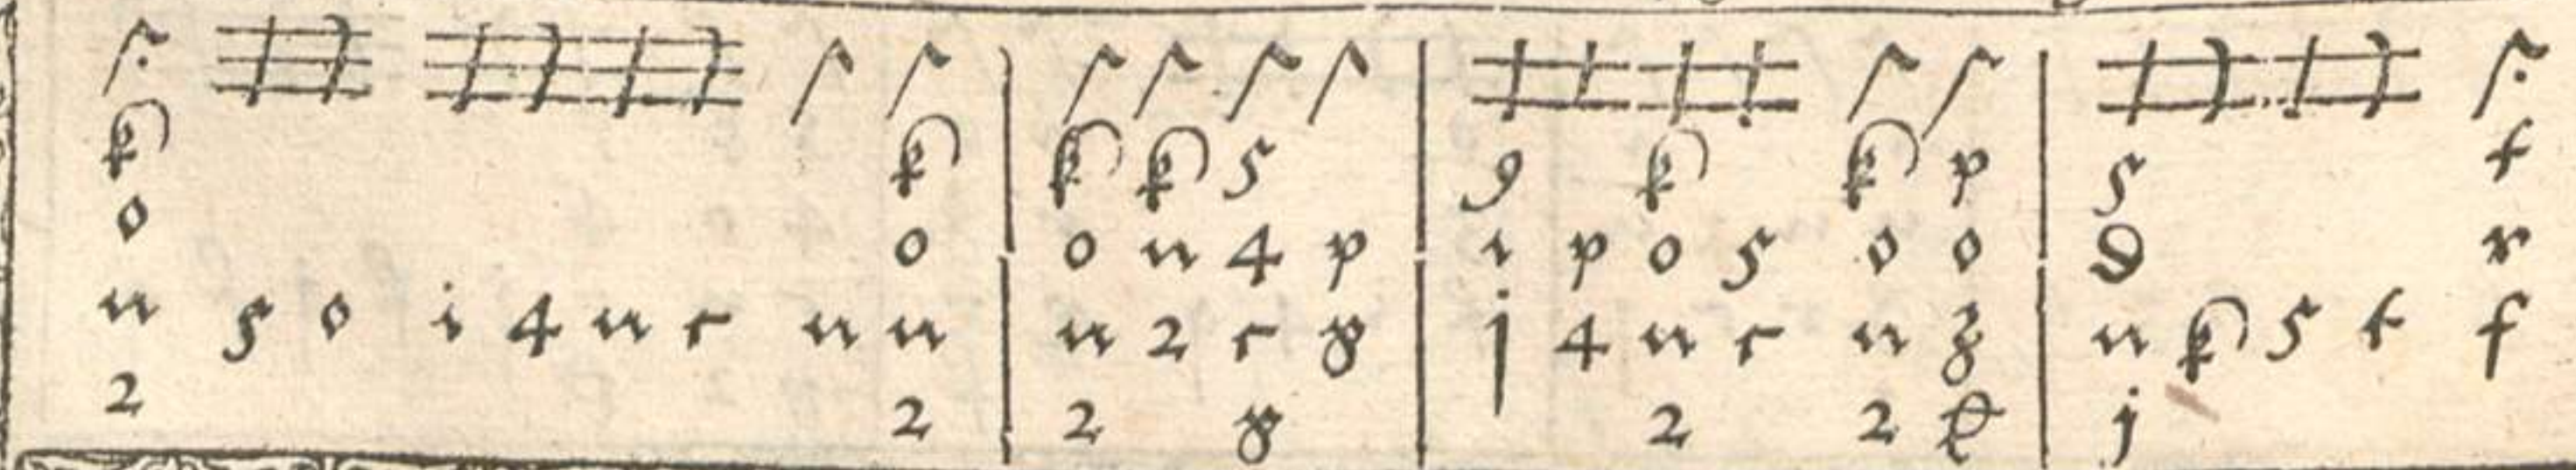 k k k k 5 9 k k p 5 f
o o o n 4 p i p o 5 o o d r
n 5 o i 4 n c n n n 2 c g j 4 n c n z n k 5 f f
2 2 2 g 2 2 j